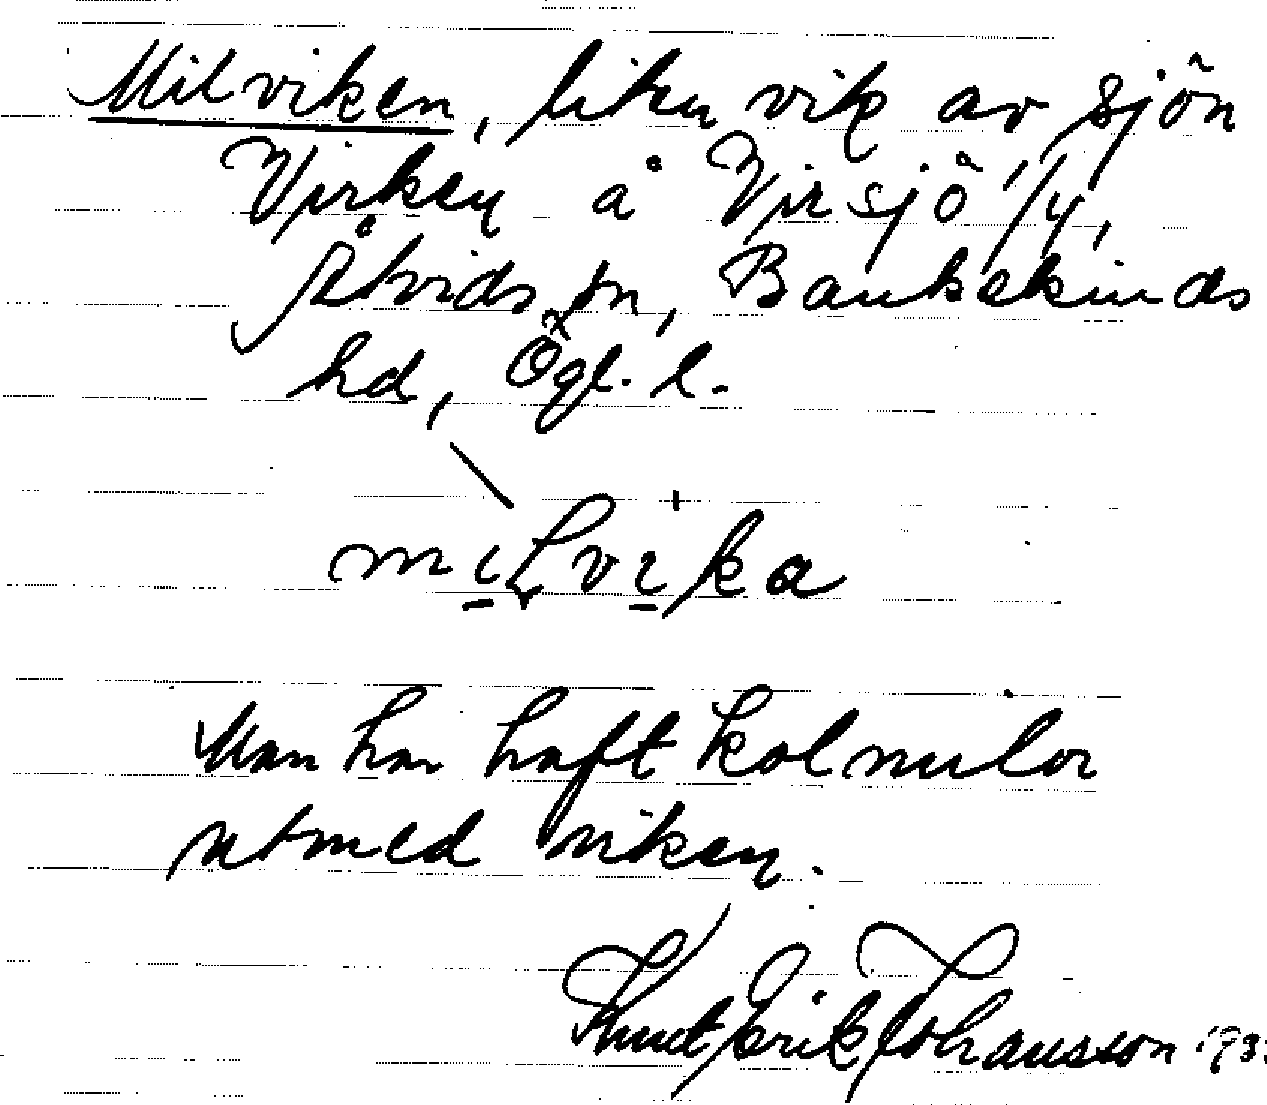 Milviken, liten vik av sjön
Virken å Virsjö 1/4,
Åtvids sn, Bankekinds
hd, Ögl. l.
milvika
Man har haft kolmilor
utmed viken.
Knut Erik Johansson